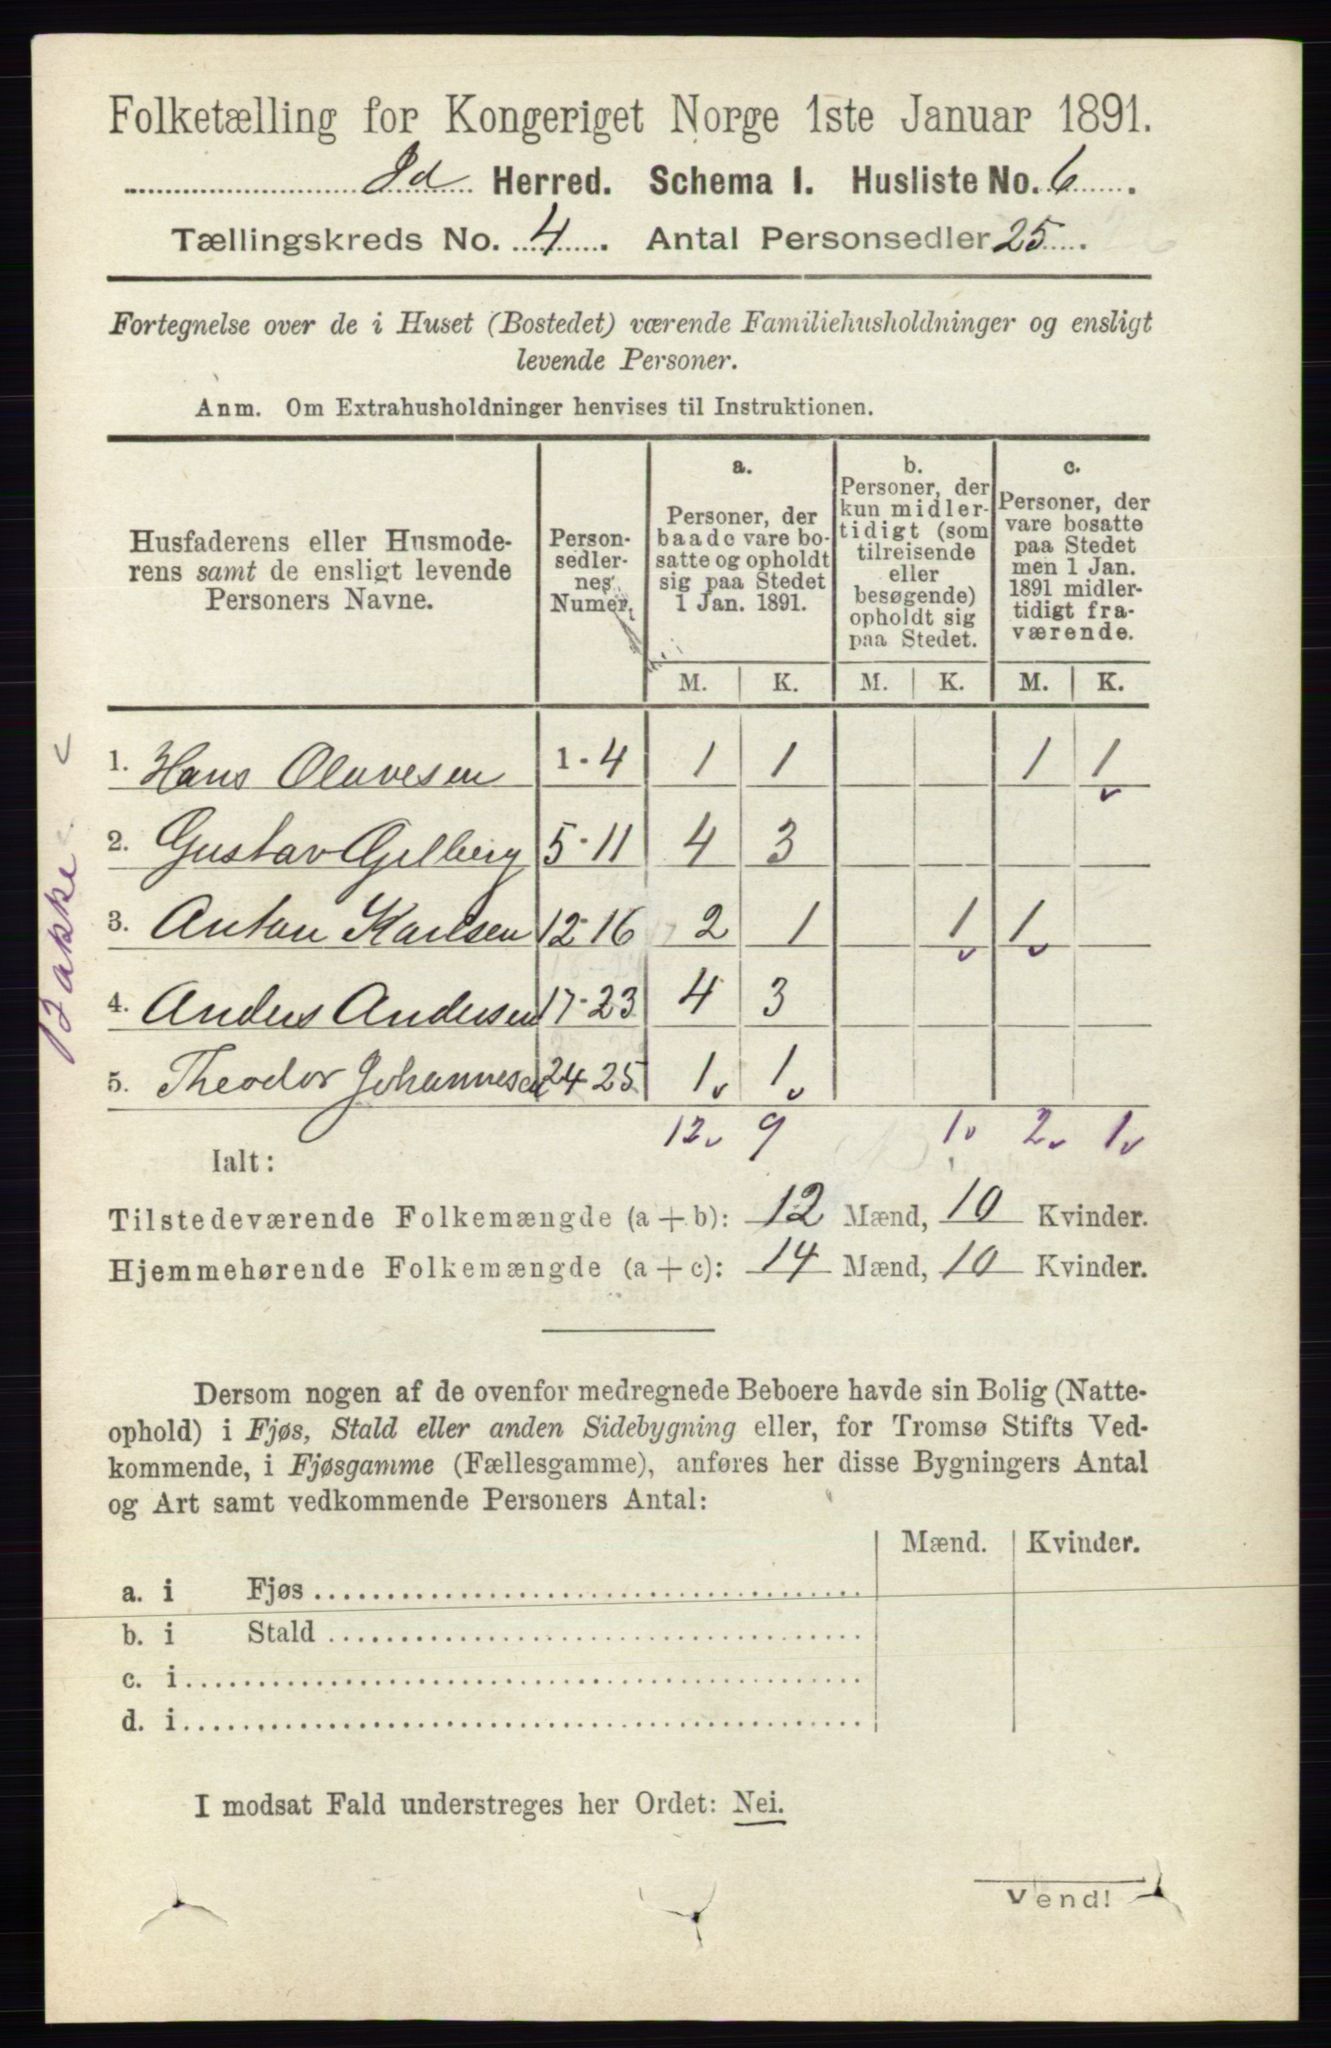 Folketælling for Kongeriget Norge 1ste Januar 1891.
Id Herred. Schema I. Husliste No. 6
Tællingskreds No. 4. Antal Personsedler 25.
Fortegnelse over de i Huset (Bostedet) værende Familiehusholdninger og ensligt
levende Personer.
Anm. Om Extrahusholdninger henvises til Instruktionen.
Husfaderens eller Husmode-
rens samt de ensligt levende
Personers Navne.
Person-
sedler-
nes
Numer.
a.
Personer, der
baade vare bo-
satte og opholdt
sig paa Stedet
1 Jan. 1891.
b.
Personer, der
kun midler-
tidigt (som
tilreisende
eller
besøgende)
opholdt sig
paa Stedet.
c.
Personer, der
vare bosatte
paa Stedet
men 1 Jan.
1891 midler-
tidigt fra-
værende.
M. K. M. K. M. K.
1. Hans Olavesen 1-4 1 1 1 1
2. Gustav Gjelberg 5-11 4 3
3. Anton Karlsen 12-16 2 1 1 1
4. Anders Andersen 17-23 4 3
5. Theodor Johannesen 24-25 1 1
12 9 1 2 1
Bakke
Ialt:
Tilstedeværende Folkemængde (a + b): 12 Mænd, 10 Kvinder.
Hjemmehørende Folkemængde (a + c): 14 Mænd, 10 Kvinder.
Dersom nogen af de ovenfor medregnede Beboere havde sin Bolig (Natte-
ophold) i Fjøs, Stald eller anden Sidebygning eller, for Tromsø Stifts Ved-
kommende, i Fjøsgamme (Fællesgamme), anføres her disse Bygningers Antal
og Art samt vedkommende Personers Antal:
Mænd. Kvinder.
a. i Fjøs
b. i Stald
c. i
d. i
I modsat Fald understreges her Ordet: Nei.
Vend!